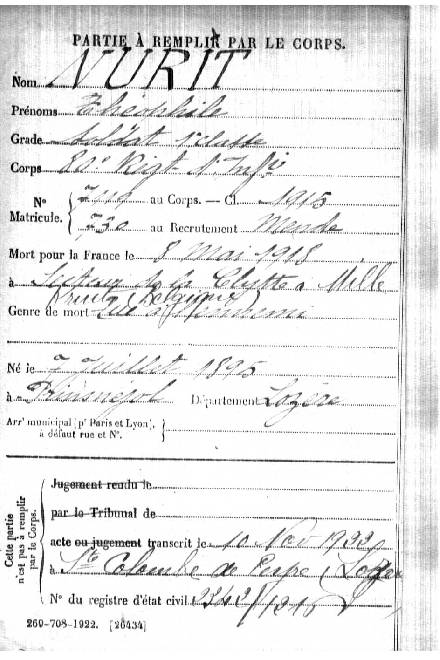 PARTIE À REMPLIR PAR LE CORPS.
Nom NURIT
Prénoms Théophile
Grade Soldat
Corps 80e Régt d'Infie
Nº au Corps. — Cl. 1915
Matricule. 730 au Recrutement Mende
Mort pour la France le 8 Mai 1918
à Secteur de la Clytte a Mille
Kruitz (Belgique)
Genre de mort Tué à l'ennemi
Né le 7 Juillet 1895
à Prinsuéjols Département Lozère
Arrt municipal (pr Paris et Lyon),
à défaut rue et Nº.
Cette partie
n'est pas à remplir
par le Corps.
Jugement rendu le
par le Tribunal de
acte ou jugement transcrit le 10 Nov
à Ste Colombe de Peyre (Lozère
Nº du registre d'état civil
269-708-1922. [26434]